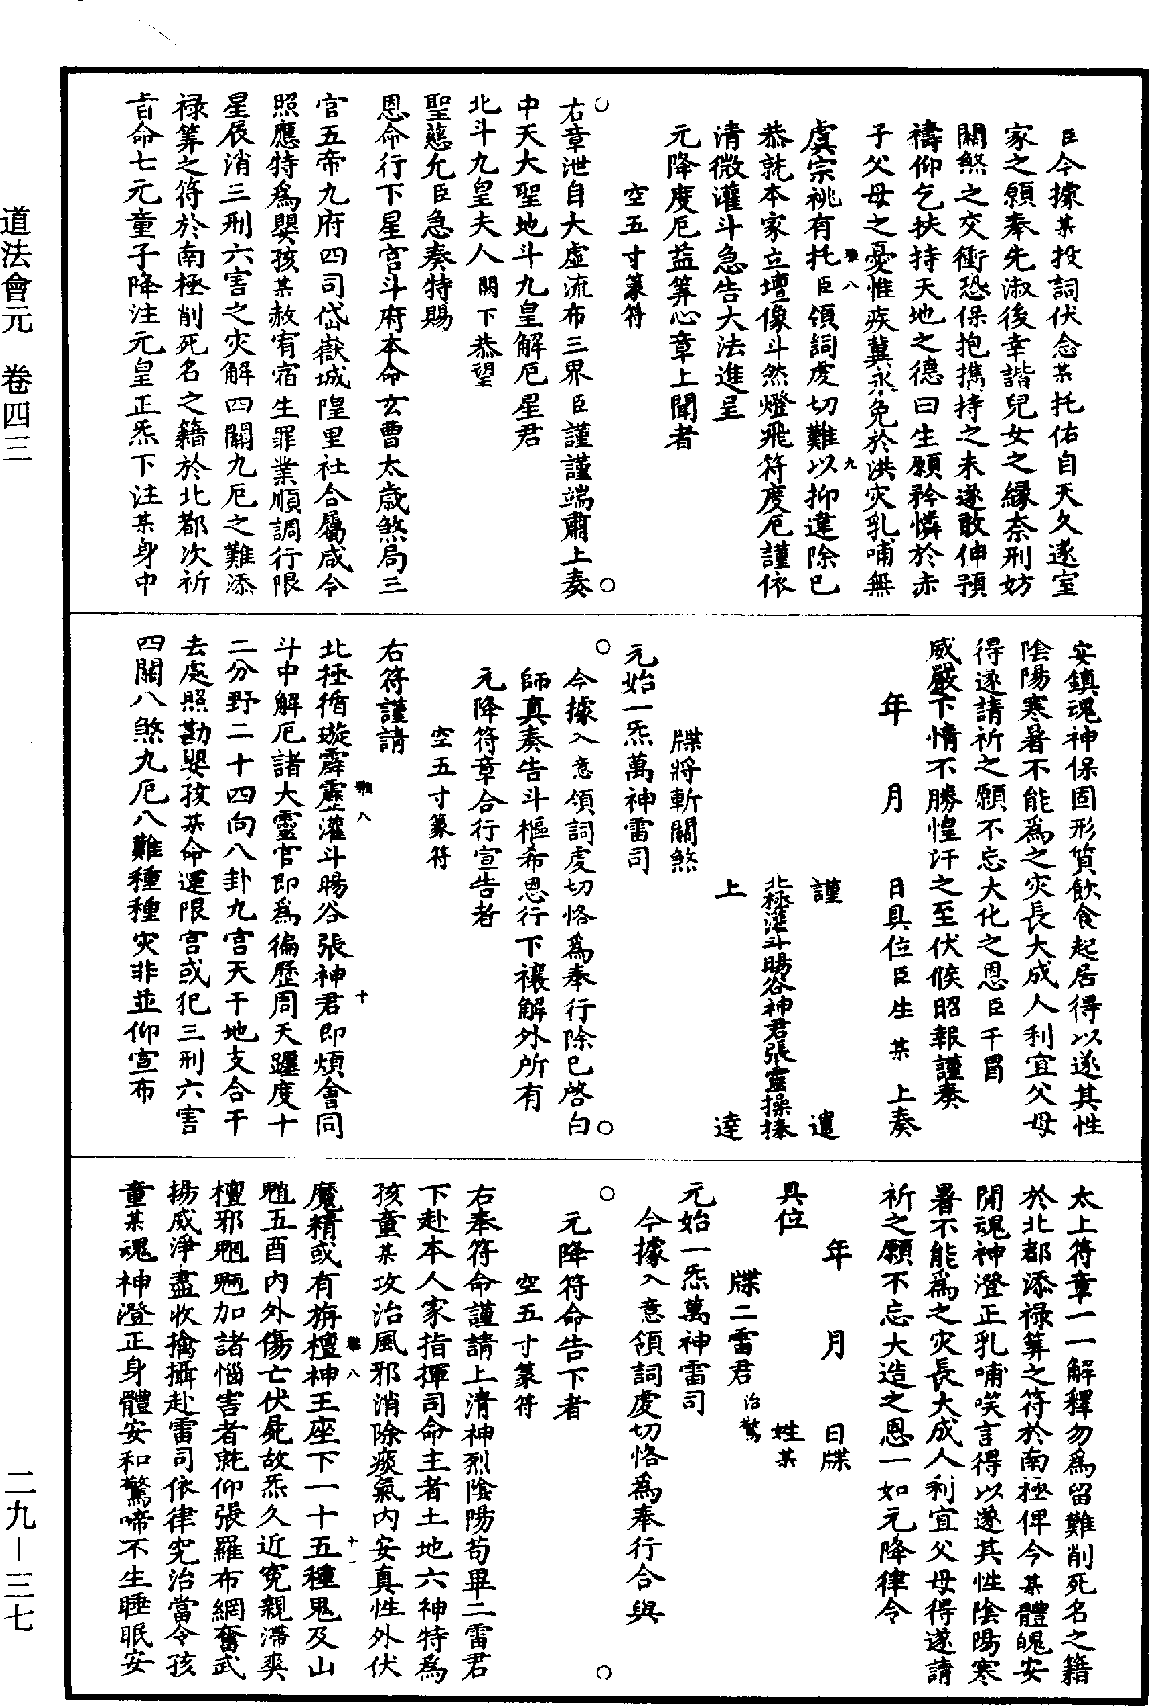 臣今據某投詞伏念某托佑自天久遂室
家之願奉先淑後幸諧兒女之緣奈刑妨
關煞之交衝恐保抱攜持之未遂敢伸預
禱仰乞扶持天地之德曰生願矜憐於赤
子父母之憂惟疾冀永免於洪灾乳哺無
虞宗祧有托臣領詞虔切難以抑違除已
恭就本家立壇像斗然燈飛符度厄謹依
清微灌斗急告大法進呈
元降度厄益筭心章上聞者
空五寸篆符
右章泄自大虛流布三界臣謹謹端肅上奏
中天大聖地斗九皇解厄星君
北斗九皇夫人閼下恭望
聖慈允臣急奏特賜
恩命行下星宮斗府本命玄曹太歲煞局三
官五帝九府四司岱嶽城隍里社合屬咸令
照應特為嬰孩某赦宥宿生罪業順調行限
星辰消三刑六害之灾解四關九厄之難添
祿筭之符於南極削死名之籍於北都次祈
旨命七元童子降注元皇正炁下注某身中
安鎮魂神保固形質飲食起居得以遂其性
陰陽寒暑不能為之灾長大成人利宜父母
得遂請祈之願不忘大化之恩臣干冒
威嚴下情不勝惶汗之至伏候昭報謹奏
年　月　日具位臣生某上奏
謹　遣
北極灌斗暘谷神君張靈操捧
上　達
牒將斬關煞
元始一炁萬神雷司
今據入意領詞虔切恪為奉行除已啓白
師真奏告斗樞希恩行下禳解外所有
元降符章合行宣告者
空五寸篆符
右符謹請
北極循璇霹靂灌斗暘谷張神君即煩會同
斗中解厄諸大靈官即為徧歷周天躔度十
二分野二十四向八卦九宮天干地支合干
去處照勘嬰孩某命運限宮或犯三刑六害
四關八煞九厄八難種種灾非並仰宣布
太上符章一一解釋勿為留難削死名之籍
於北都添祿筭之符於南極俾令某體魄安
閒魂神澄正乳哺唉言得以遂其性陰陽寒
暑不能為之灾長大成人利宜父母得遂請
祈之願不忘大造之恩一如元降律令
年　月　日牒
具位　姓某
牒二雷君治驚
元始一炁萬神雷司
今據入意領詞虔切恪為奉行合與
元降符命告下者
空五寸篆符
右奉符命謹請上清神烈陰陽苟畢二雷君
下赴本人家指揮司命主者土地六神特為
孩童某攻治風邪消除痰氣內安真性外伏
魔精或有旃檀神王座下一十五種鬼及山
魈五酉內外傷亡伏屍故炁久近冤親滯爽
檀邪魍魎加諸惱害者就仰張羅布網奮武
揚威淨盡收擒攝赴雷司依律究治當令孩
童某魂神澄正身體安和驚啼不生睡眠安
道法會元　卷四三
二九—三七